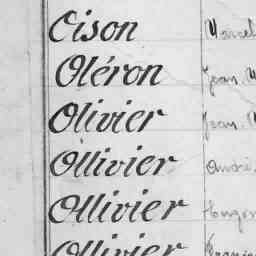 Oison
Oléron Jean
Olivier Jean
Ollivier André
Ollivier
Ollivier